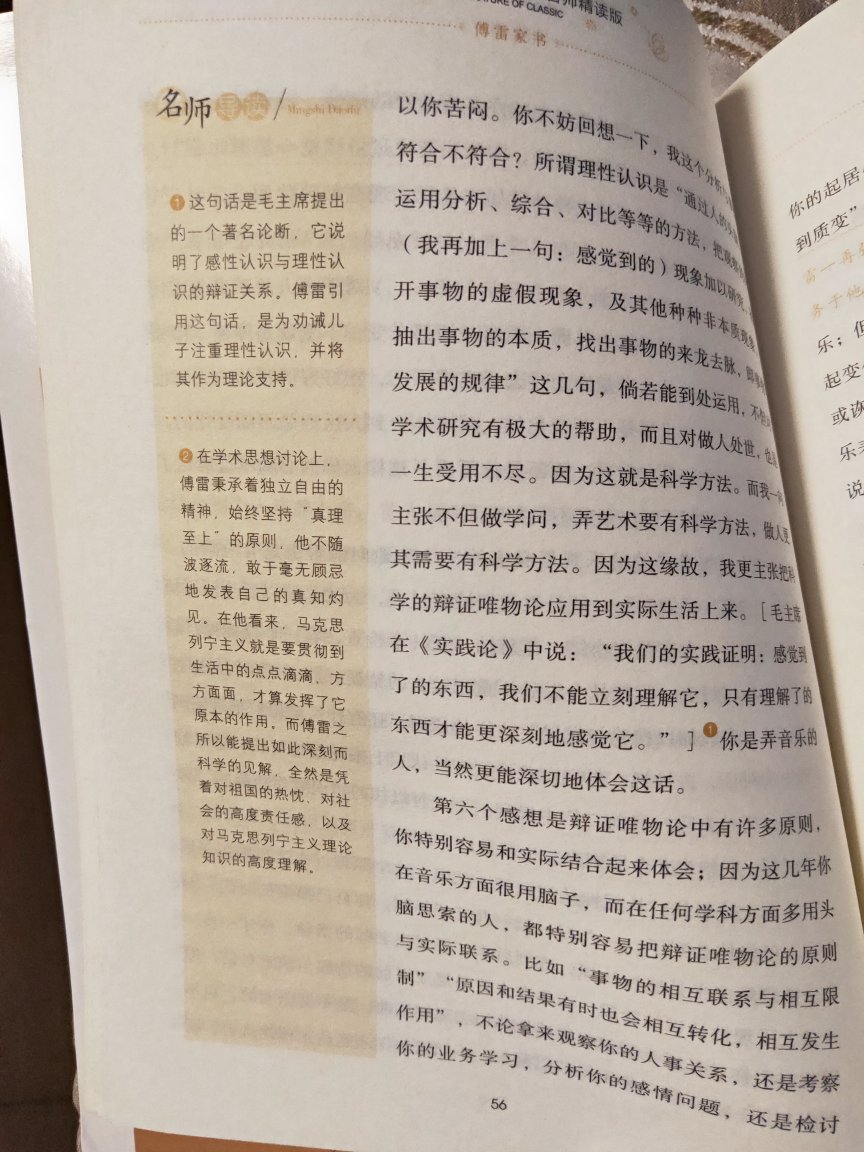 TURE OF CLASSIC
师精读版
傅雷家书
名师导读
Mingshi Daodu
❶这句话是毛主席提出
的一个著名论断，它说
明了感性认识与理性认
识的辩证关系。傅雷引
用这句话，是为劝诫儿
子注重理性认识，并将
其作为理论支持。
❷在学术思想讨论上，
傅雷秉承着独立自由的
精神，始终坚持“真理
至上”的原则，他不随
波逐流，敢于毫无顾忌
地发表自己的真知灼
见。在他看来，马克思
列宁主义就是要贯彻到
生活中的点点滴滴，方
方面面，才算发挥了它
原本的作用。而傅雷之
所以能提出如此深刻而
科学的见解，全然是凭
着对祖国的热忱、对社
会的高度责任感，以及
对马克思列宁主义理论
知识的高度理解。
以你苦闷。你不妨回想一下，我这个分析
符合不符合？所谓理性认识是“通过人的头
运用分析、综合、对比等等的方法，把观察
（我再加上一句：感觉到的）现象加以研究，
开事物的虚假现象，及其他种种非本质现象，
抽出事物的本质，找出事物的来龙去脉，即事物
发展的规律”这几句，倘若能到处运用，不但对
学术研究有极大的帮助，而且对做人处世，也是
一生受用不尽。因为这就是科学方法。而我一向
主张不但做学问，弄艺术要有科学方法，做人更
其需要有科学方法。因为这缘故，我更主张把科
学的辩证唯物论应用到实际生活上来。[毛主席
在《实践论》中说：“我们的实践证明：感觉到
了的东西，我们不能立刻理解它，只有理解了的
东西才能更深刻地感觉它。”]❶你是弄音乐的
人，当然更能深切地体会这话。
第六个感想是辩证唯物论中有许多原则，
你特别容易和实际结合起来体会；因为这几年你
在音乐方面很用脑子，而在任何学科方面多用头
脑思索的人，都特别容易把辩证唯物论的原则
与实际联系。比如“事物的相互联系与相互限
制”“原因和结果有时也会相互转化，相互发生
作用”，不论拿来观察你的人事关系，还是考察
你的业务学习，分析你的感情问题，还是检讨
56
你的起居
到质变”
务于他
乐；但
起变
或诙
乐
说